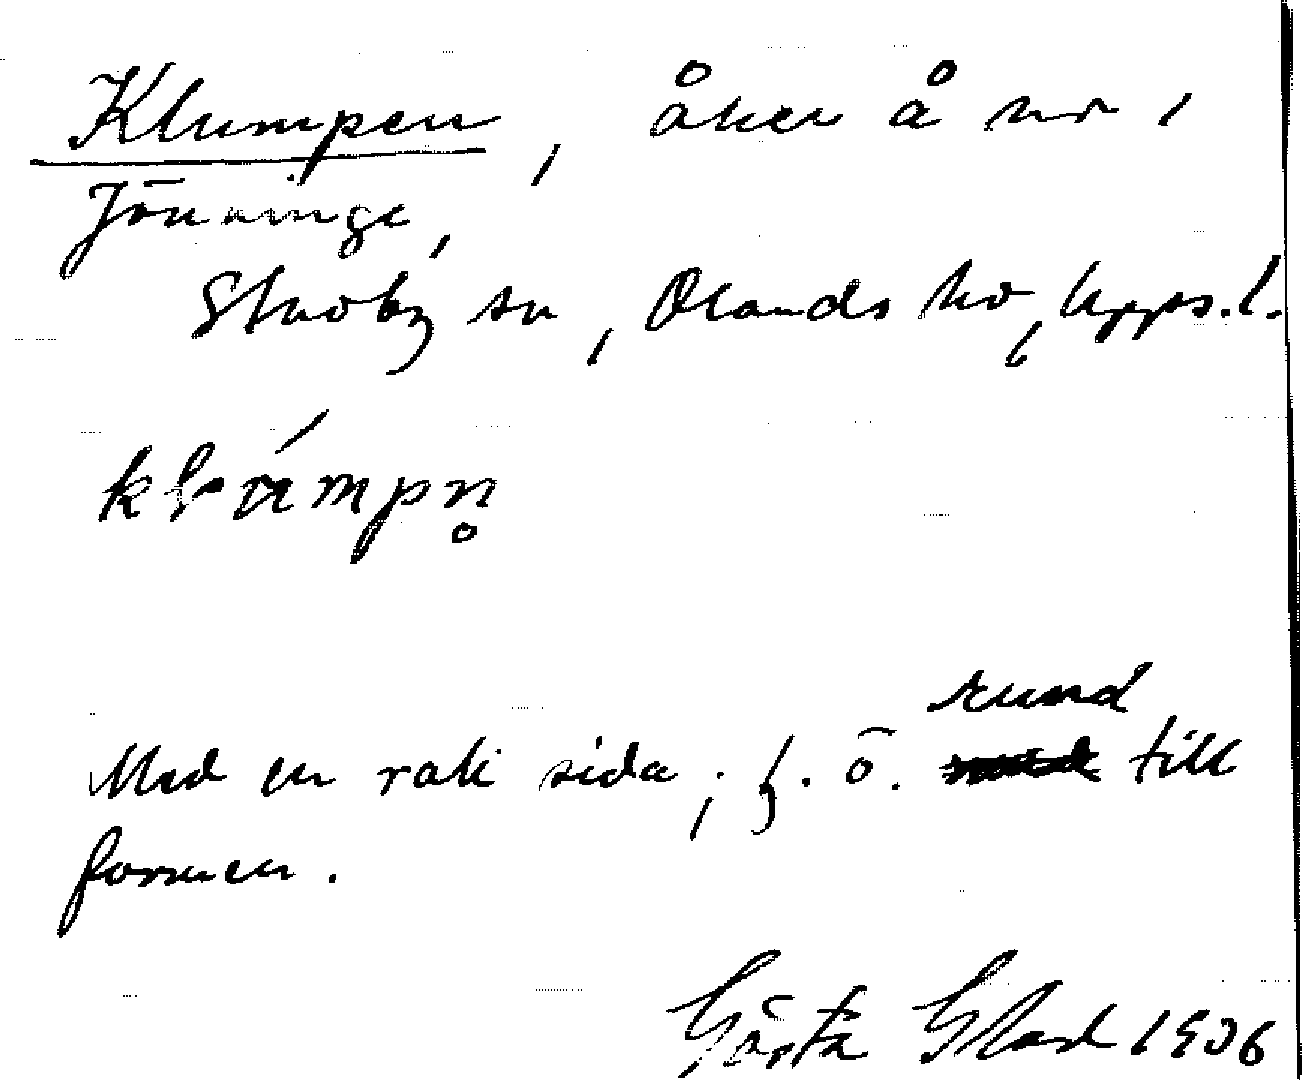 Klumpen, åker å nr 1
Jönninge,
Skuoby sn, Olands hd, Upps. l.
klúmpn̥
Med en rak sida; f. ö. rund till
formen.
Gösta Blad 1936